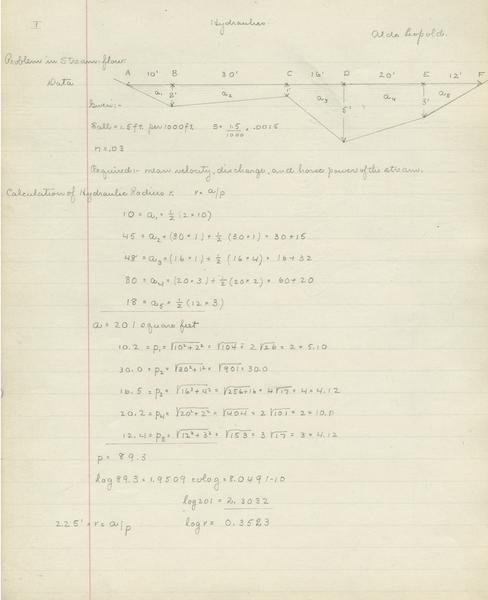 I
Hydraulics.
Aldo Leopold.
Problem in Stream flow.
Data
A 10' B 30' C 16' D 20' E 12' F
a₁ 2' a₂ 1' a₃ 5' a₄ 3' a₅
Given:-
Fall = 1.5 ft. per 1000 ft. S = 1.5/1000 = .0015
n = .03
Required:- mean velocity, discharge, and horse power of the stream.
Calculation of Hydraulic Radius r. r = a/p
10 = a₁ = ½ (2 × 10)
45 = a₂ = (30 × 1) + ½ (30 × 1) = 30 + 15
48 = a₃ = (16 × 1) + ½ (16 × 4) = 16 + 32
80 = a₄ = (20 × 3) + ½ (20 × 2) = 60 + 20
18 = a₅ = ½ (12 × 3)
a = 201 square feet
10.2 = p₁ = √10² + 2² = √104 = 2 √26 = 2 × 5.10
30.0 = p₂ = √30² + 1² = √901 = 30.0
16.5 = p₃ = √16² + 4² = √256 + 16 = 4 √17 = 4 × 4.12
20.2 = p₄ = √20² + 2² = √404 = 2 √101 = 2 × 10.0
12.4 = p₅ = √12² + 3² = √153 = 3 √17 = 3 × 4.12
p = 89.3
log 89.3 = 1.9509 colog = 8.0491-10
log 201 = 2.3032
2.25' = r = a/p log r = 0.3523